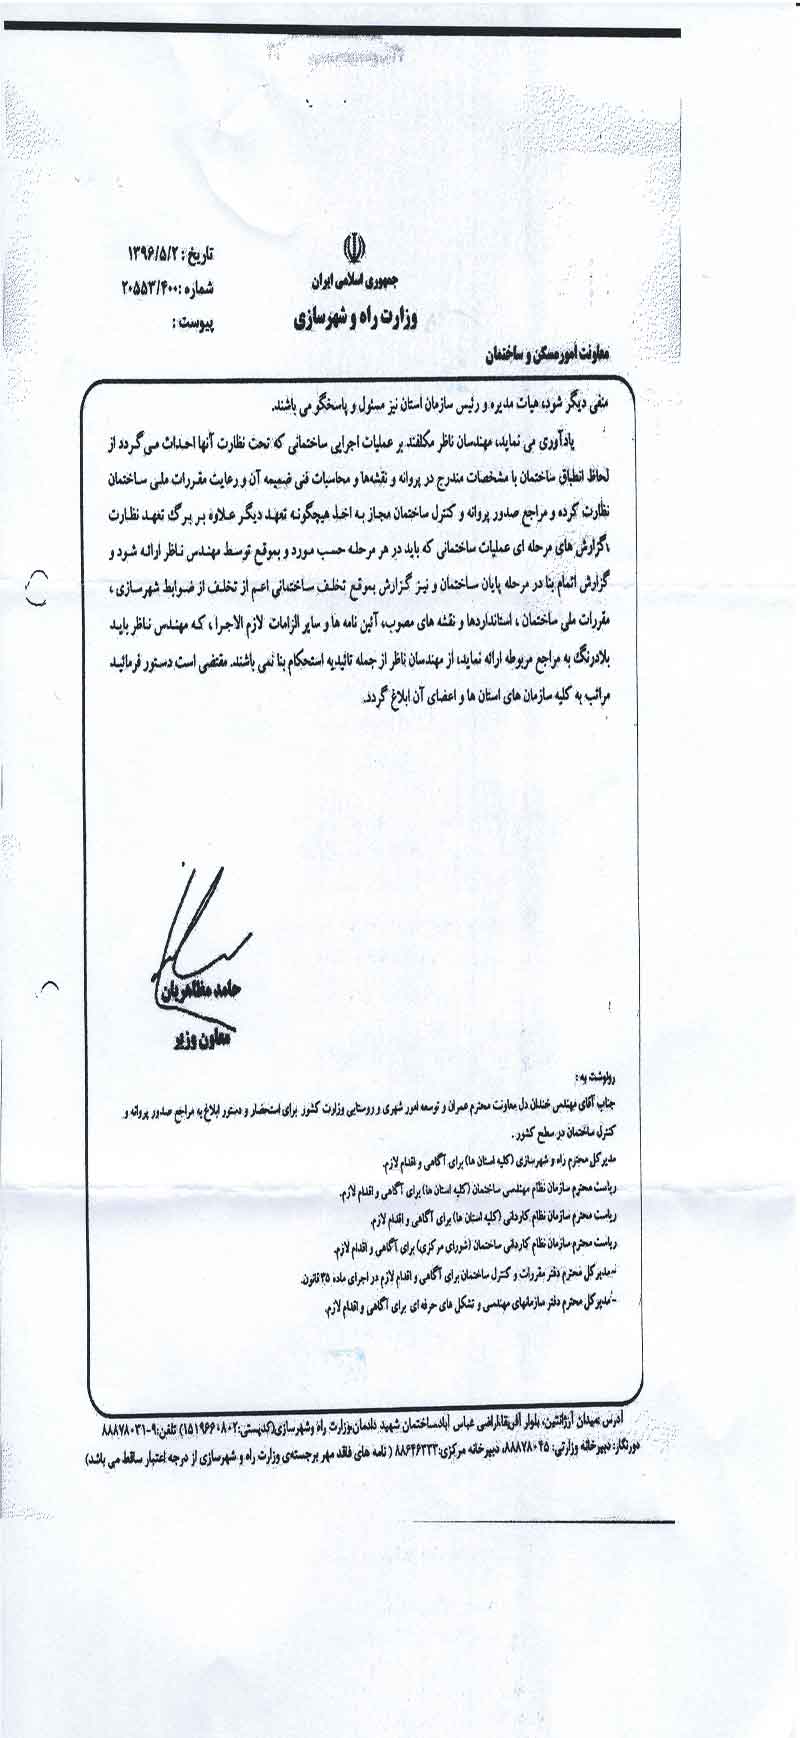 جمهوری اسلامی ایران
وزارت راه و شهرسازی
تاریخ : ۱۳۹۶/۵/۲
شماره :۲۰۵۵۳/۴۰۰
پیوست :
معاونت امور مسکن و ساختمان
منفی دیگر شود، هیات مدیره و رئیس سازمان استان نیز مسئول و پاسخگو می باشند.
یادآوری می نماید، مهندسان ناظر مکلفند بر عملیات اجرایی ساختمانی که تحت نظارت آنها احداث می‌گردد از
لحاظ انطباق ساختمان با مشخصات مندرج در پروانه و نقشه‌ها و محاسبات فنی ضمیمه آن و رعایت مقررات ملی ساختمان
نظارت کرده و مراجع صدور پروانه و کنترل ساختمان مجاز به اخذ هیچگونه تعهد دیگر علاوه بر برگ تعهد نظارت
،گزارش های مرحله ای عملیات ساختمانی که باید در هر مرحله حسب مورد و بموقع توسط مهندس ناظر ارائه شود و
گزارش اتمام بنا در مرحله پایان ساختمان و نیز گزارش بموقع تخلف ساختمانی اعم از تخلف از ضوابط شهرسازی ،
مقررات ملی ساختمان ، استانداردها و نقشه های مصوب، آئین نامه ها و سایر الزامات لازم الاجرا ، که مهندس ناظر باید
بلادرنگ به مراجع مربوطه ارائه نماید، از مهندسان ناظر از جمله تائیدیه استحکام بنا نمی باشند. مقتضی است دستور فرمائید
مراتب به کلیه سازمان های استان ها و اعضای آن ابلاغ گردد.
حامد مظاهریان
معاون وزیر
رونوشت به :
جناب آقای مهندس خندان دل معاونت محترم عمران و توسعه امور شهری و روستایی وزارت کشور برای استحضار و دستور ابلاغ به مراجع صدور پروانه و
کنترل ساختمان در سطح کشور .
مدیر کل محترم راه و شهرسازی (کلیه استان ها) برای آگاهی و اقدام لازم.
ریاست محترم سازمان نظام مهندسی ساختمان (کلیه استان ها) برای آگاهی و اقدام لازم.
ریاست محترم سازمان نظام کاردانی (کلیه استان ها) برای آگاهی و اقدام لازم.
ریاست محترم سازمان نظام کاردانی ساختمان (شورای مرکزی) برای آگاهی و اقدام لازم.
-مدیر کل محترم دفتر مقررات و کنترل ساختمان برای آگاهی و اقدام لازم در اجرای ماده ۳۵ قانون.
-مدیر کل محترم دفتر سازمانهای مهندسی و تشکل های حرفه ای برای آگاهی و اقدام لازم.
آدرس :میدان آرژانتین، بلوار آفریقا،اراضی عباس آباد،ساختمان شهید دادمان،وزارت راه وشهرسازی(کدپستی:۱۵۱۹۶۶۰۸۰۲) تلفن:۹-۸۸۸۷۸۰۳۱
دورنگار: دبیرخانه وزارتی: ۸۸۸۷۸۰۴۵، دبیرخانه مرکزی:۸۸۶۴۶۳۳۳ ( نامه های فاقد مهر برجسته‌ی وزارت راه و شهرسازی از درجه اعتبار ساقط می باشد)